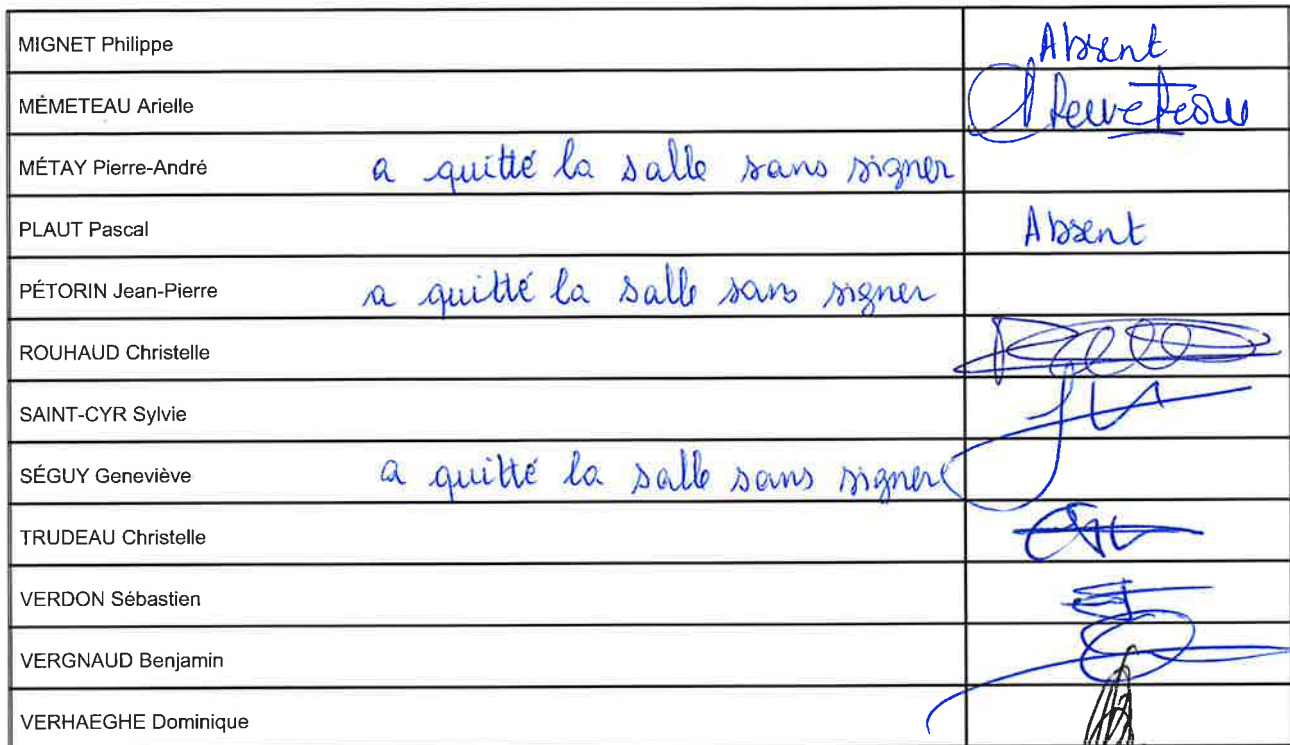 MIGNET Philippe Absent
MÉMETEAU Arielle
MÉTAY Pierre-André a quitté la salle sans signer
PLAUT Pascal Absent
PÉTORIN Jean-Pierre a quitté la salle sans signer
ROUHAUD Christelle
SAINT-CYR Sylvie
SÉGUY Geneviève a quitté la salle sans signer
TRUDEAU Christelle
VERDON Sébastien
VERGNAUD Benjamin
VERHAEGHE Dominique